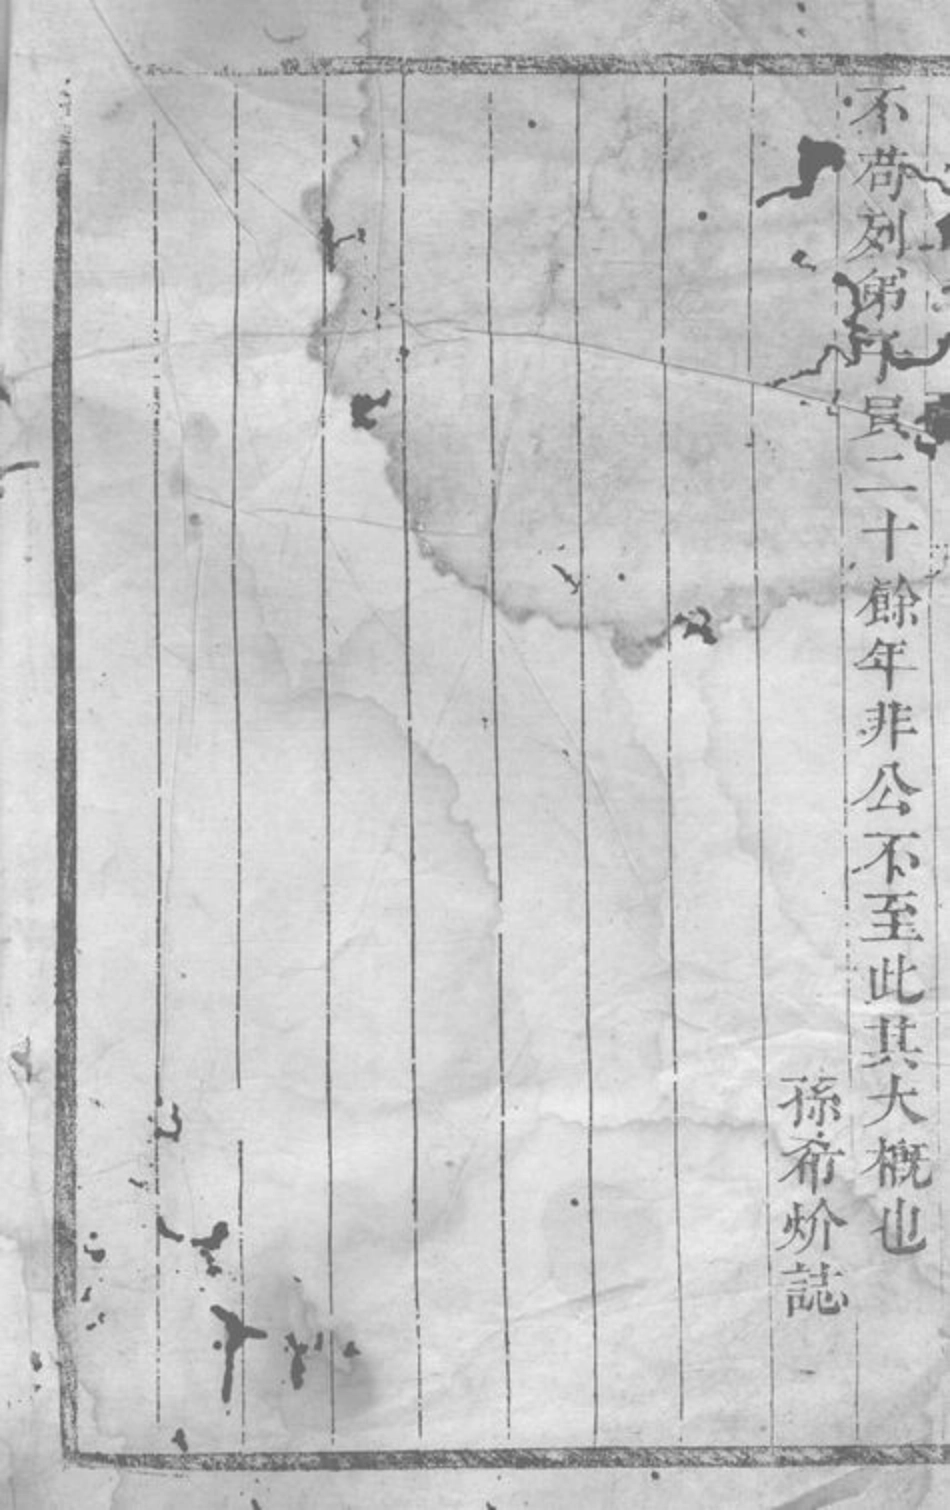 不苟列弟子員二十餘年非公不至此其大概也
孫希炌誌